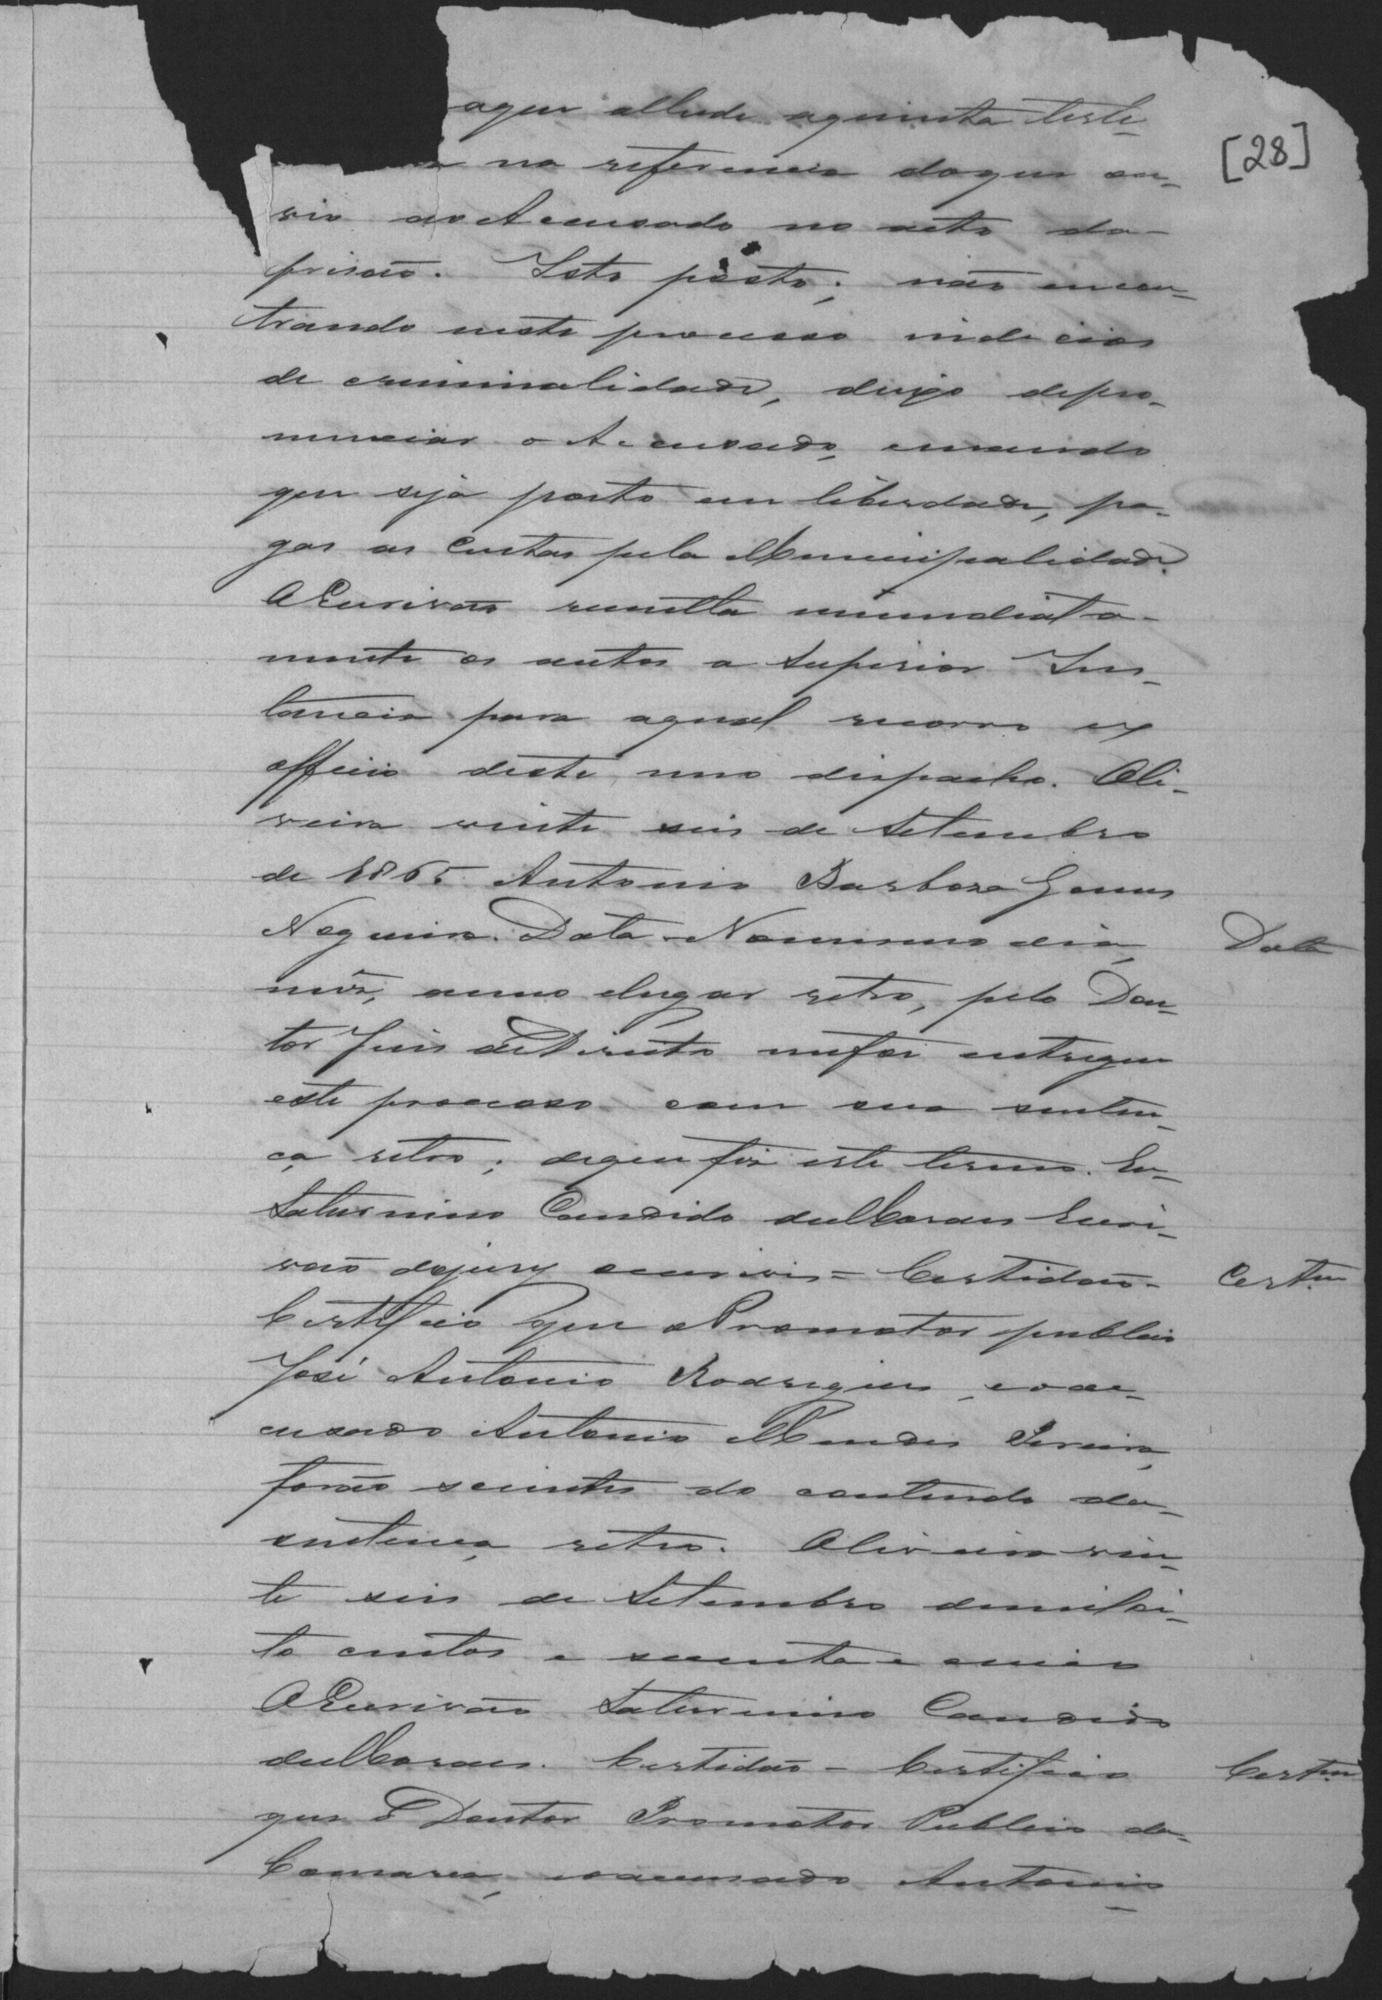 aque allude aquinta teste-
[28]
na referencia doque ou-
vio ao Accusado no acto da
prisão. Isto posto; não encon-
trando neste processo indicios
de criminalidade, deixo depro-
nunciar o Accusado, emando
que seja posto em liberdade, pa-
gas as custas pela Municipalidade.
OEscrivão remetta immediata-
mente os autos a Superior Ins-
tancia para aqual recorro ex
officio deste meo despacho. Oli-
veira vinte seis de Setembro
de 1865. Antonio Barbosa Gomes
Nogueira. Data - Nomesmo dia,
Data
mez, anno elugar retro, pelo Dou-
tor Juis deDireito mefoi entregue
este processo com sua senten-
ça retro; deque fiz este termo. Eu
Saturnino Candido deMoraes Escri-
vão dojury escrivi = Certidão -
Certm
Certifico que oPromotor publico
José Antonio Rodrigues, eoac-
cusado Antonio Mendes Pereira,
forão scientes do conteudo da
sentença retro. Oliveira vin-
te seis de Setembro demiloi-
to centos e secenta e cinco
OEscrivão Saturnino Candido
deMoraes. Certidão - Certifico
Certm
que o Doutor Promotor Publico da
Comarca, eoaccusado Antonio